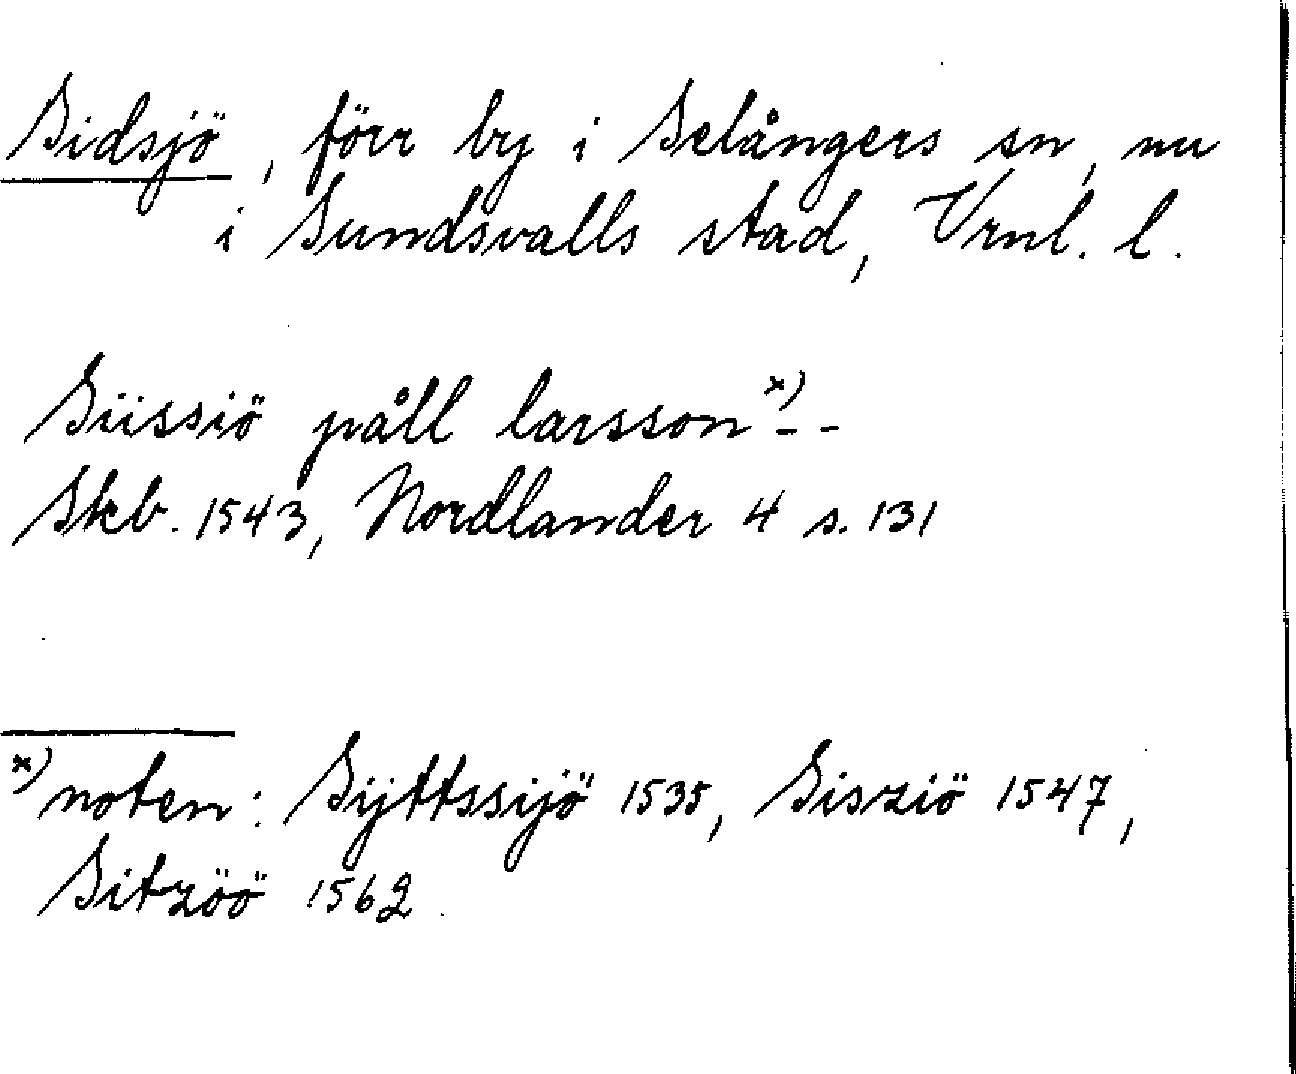 Sidsjö, förr by i Selångers sn, nu
i Sundsvalls stad, Vrnl. l.
Siissiö påll larsson x) - -
Skb. 1543, Nordlander 4 s. 131
x) noten: Sÿttssijö 1535, Sisziö 1547,
Sitzöö 1562.